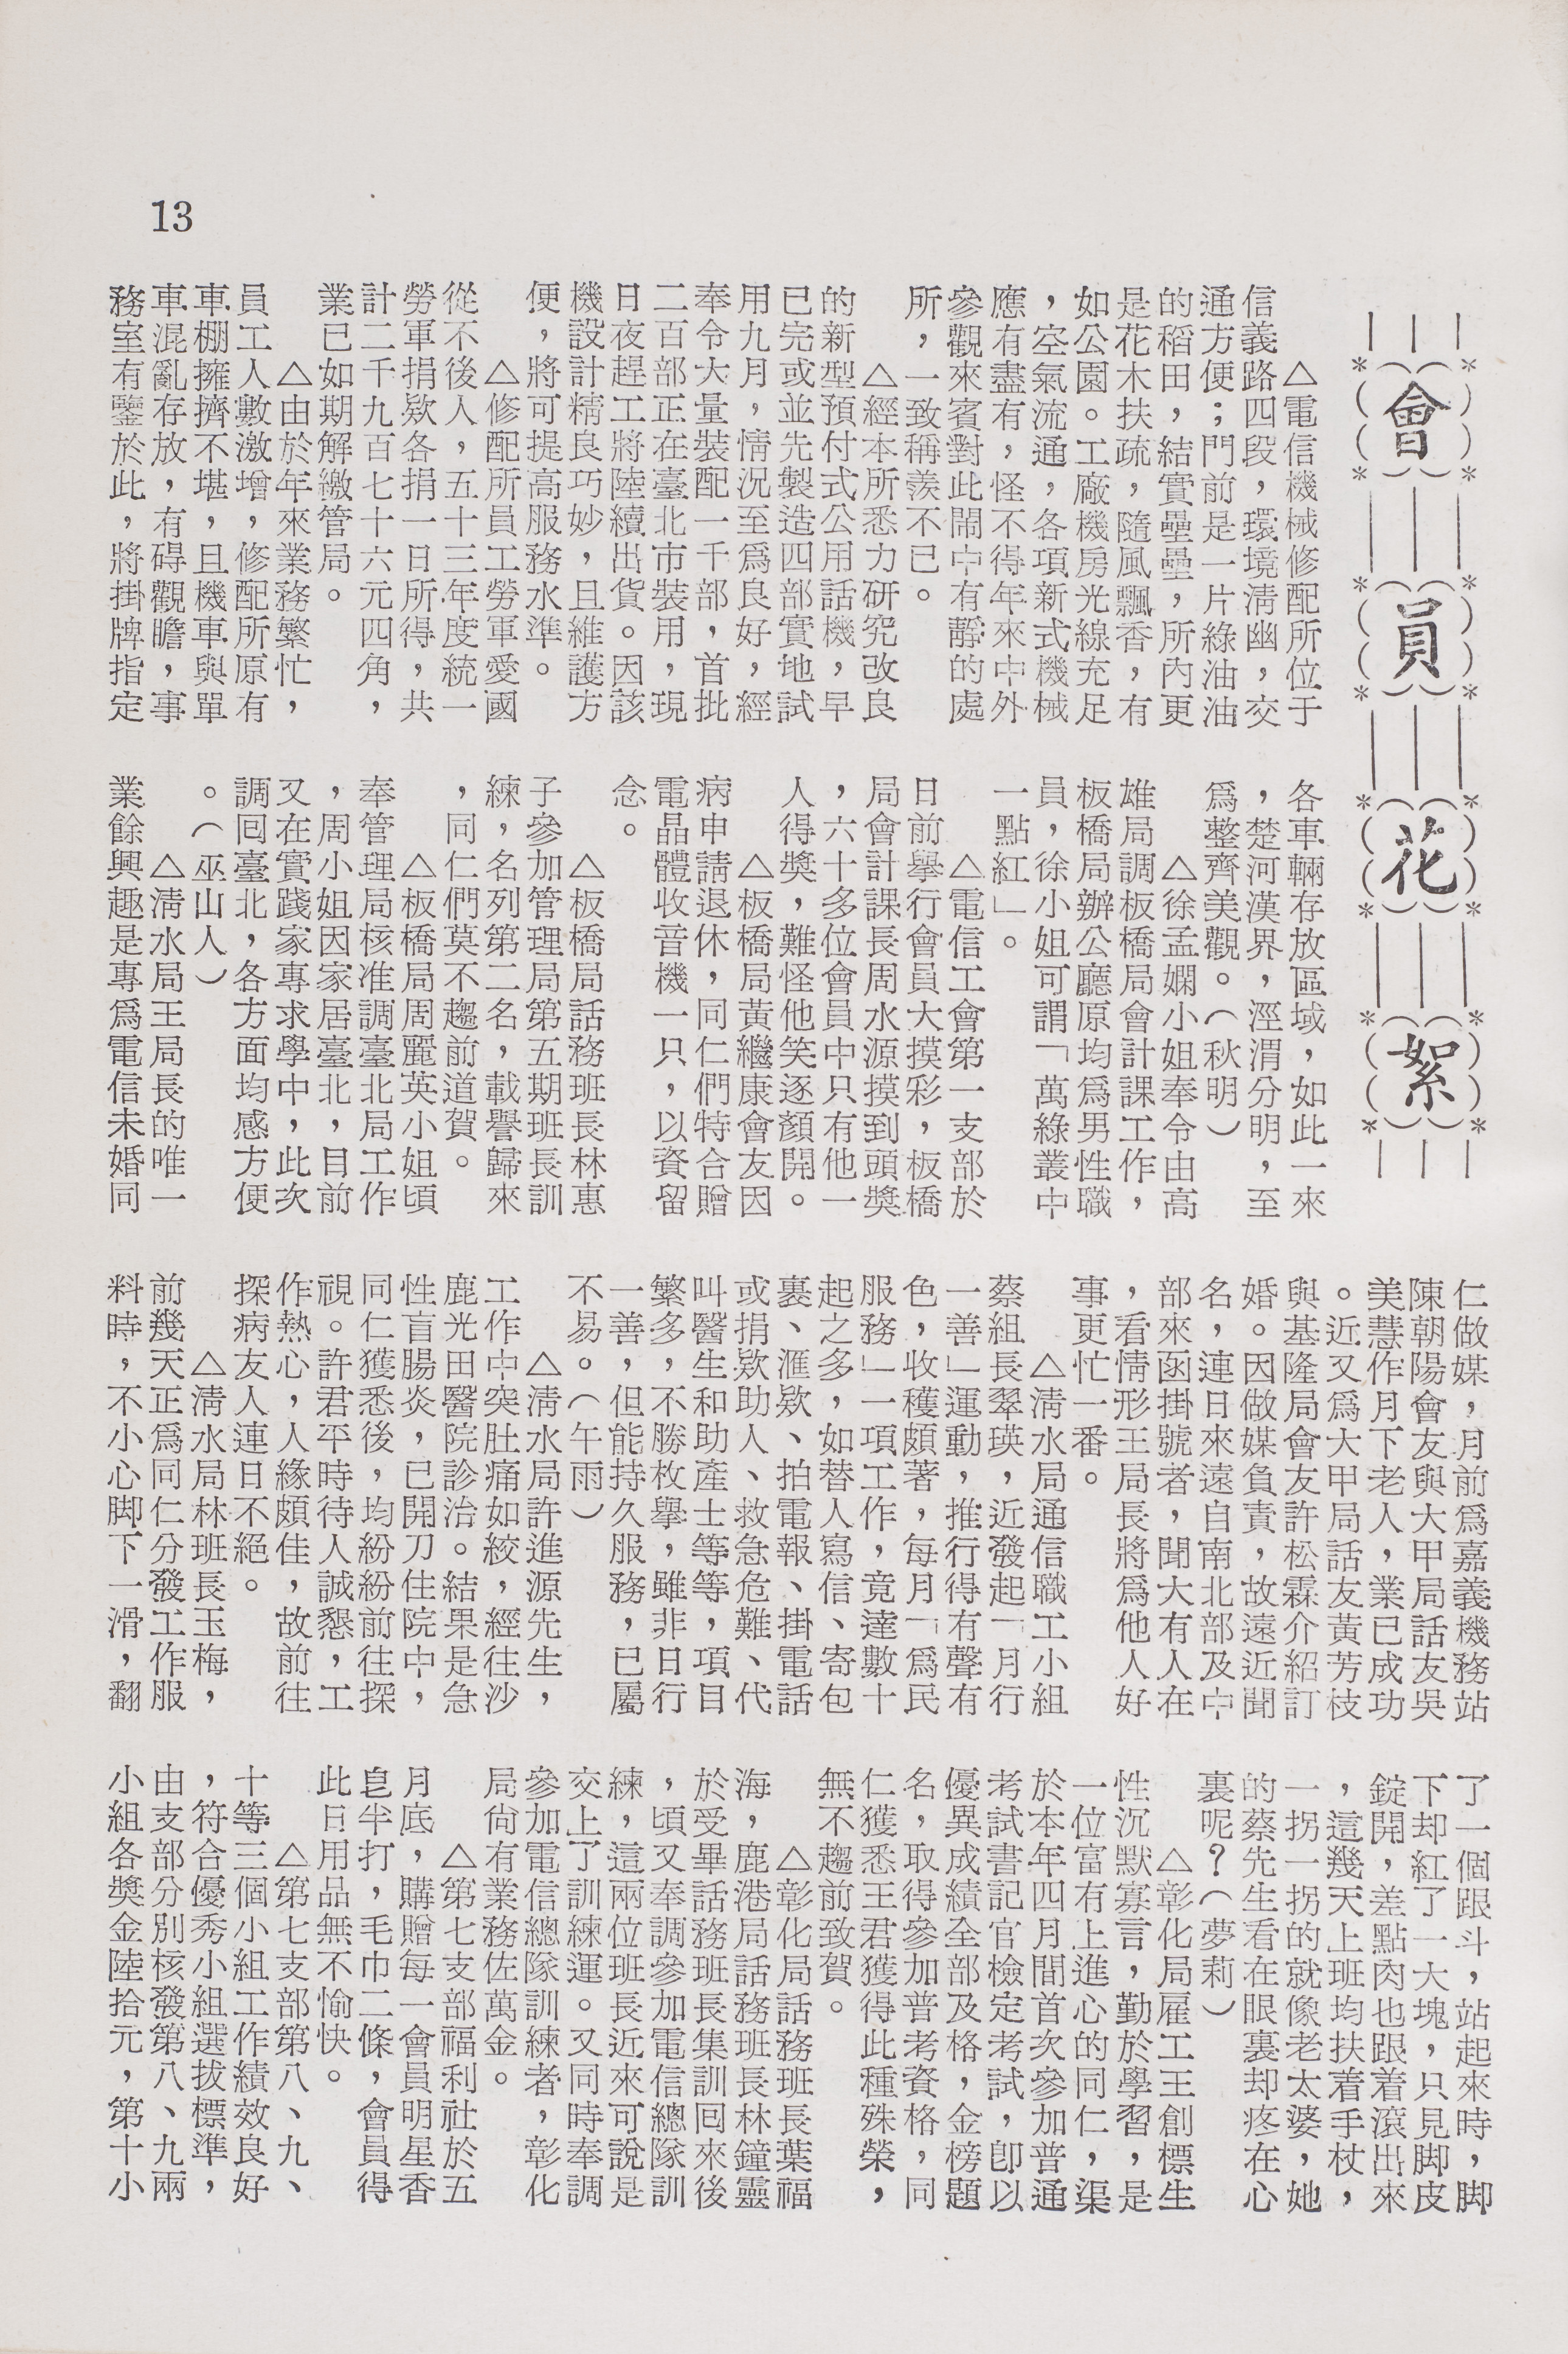 會員花絮
△電信機械修配所位于
信義路四段，環境清幽，交
通方便；門前是一片綠油油
的稻田，結實壘壘，所內更
是花木扶疏，隨風飄香，有
如公園。工廠機房光線充足
，空氣流通，各項新式機械
應有盡有，怪不得年來中外
參觀來賓對此鬧中有靜的處
所，一致稱羨不已。
△經本所悉力研究改良
的新型預付式公用話機，早
已完或並先製造四部實地試
用九月，情況至爲良好，經
奉令大量裝配一千部，首批
二百部正在臺北市裝用，現
日夜趕工將陸續出貨。因該
機設計精良巧妙，且維護方
便，將可提高服務水準。
△修配所員工勞軍愛國
從不後人，五十三年度統一
勞軍捐欵各捐一日所得，共
計二千九百七十六元四角，
業已如期解繳管局。
△由於年來業務繁忙，
員工人數激增，修配所原有
車棚擁擠不堪，且機車與單
車混亂存放，有碍觀瞻，事
務室有鑒於此，將掛牌指定
各車輛存放區域，如此一來
，楚河漢界，涇渭分明，至
爲整齊美觀。（秋明）
△徐孟嫻小姐奉令由高
雄局調板橋局會計課工作，
板橋局辦公廳原均爲男性職
員，徐小姐可謂「萬綠叢中
一點紅」。
△電信工會第一支部於
日前舉行會員大摸彩，板橋
局會計課長周水源摸到頭獎
，六十多位會員中只有他一
人得獎，難怪他笑逐顏開。
△板橋局黃繼康會友因
病申請退休，同仁們特合贈
電晶體收音機一只，以資留
念。
△板橋局話務班長林惠
子參加管理局第五期班長訓
練，名列第二名，載譽歸來
，同仁們莫不趨前道賀。
△板橋局周麗英小姐頃
奉管理局核准調臺北局工作
，周小姐因家居臺北，目前
又在實踐家專求學中，此次
調回臺北，各方面均感方便
。（巫山人）
△清水局王局長的唯一
業餘興趣是專爲電信未婚同
仁做媒，月前爲嘉義機務站
陳朝陽會友與大甲局話友吳
美慧作月下老人，業已成功
。近又爲大甲局話友黃芳枝
與基隆局會友許松霖介紹訂
婚。因做媒負責，故遠近聞
名，連日來遠自南北部及中
部來函掛號者，聞大有人在
，看情形王局長將爲他人好
事更忙一番。
△清水局通信職工小組
蔡組長翠瑛，近發起「月行
一善」運動，推行得有聲有
色，收穫頗著，每月「爲民
服務」一項工作，竟達數十
起之多，如替人寫信、寄包
裹、滙欵、拍電報、掛電話
或捐欵助人、救急危難、代
叫醫生和助產士等等，項目
繁多，不勝枚擧，雖非日行
一善，但能持久服務，已屬
不易。（午雨）
△清水局許進源先生，
工作中突肚痛如絞，經往沙
鹿光田醫院診治。結果是急
性盲腸炎，已開刀住院中，
同仁獲悉後，均紛紛前往探
視。許君平時待人誠懇，工
作熱心，人緣頗佳，故前往
探病友人連日不絕。
△清水局林班長玉梅，
前幾天正爲同仁分發工作服
料時，不小心脚下一滑，翻
了一個跟斗，站起來時，脚
下却紅了一大塊，只見脚皮
錠開，差點肉也跟着滾出來
，這幾天上班均扶着手杖，
一拐一拐的就像老太婆，她
的蔡先生看在眼裏却疼在心
裏呢？（夢莉）
△彰化局雇工王創標生
性沉默寡言，勤於學習，是
一位富有上進心的同仁，渠
於本年四月間首次參加普通
考試書記官檢定考試，卽以
優異成績全部及格，金榜題
名，取得參加普考資格，同
仁獲悉王君獲得此種殊榮，
無不趨前致賀。
△彰化局話務班長葉福
海，鹿港局話務班長林鐘靈
於受畢話務班長集訓回來後
，頃又奉調參加電信總隊訓
練，這兩位班長近來可說是
交上了訓練運。又同時奉調
參加電信總隊訓練者，彰化
局尙有業務佐萬金。
△第七支部福利社於五
月底，購贈每一會員明星香
皂半打，毛巾二條，會員得
此日用品無不愉快。
△第七支部第八、九、
十等三個小組工作績效良好
，符合優秀小組選拔標準，
由支部分別核發第八、九兩
小組各獎金陸拾元，第十小
13